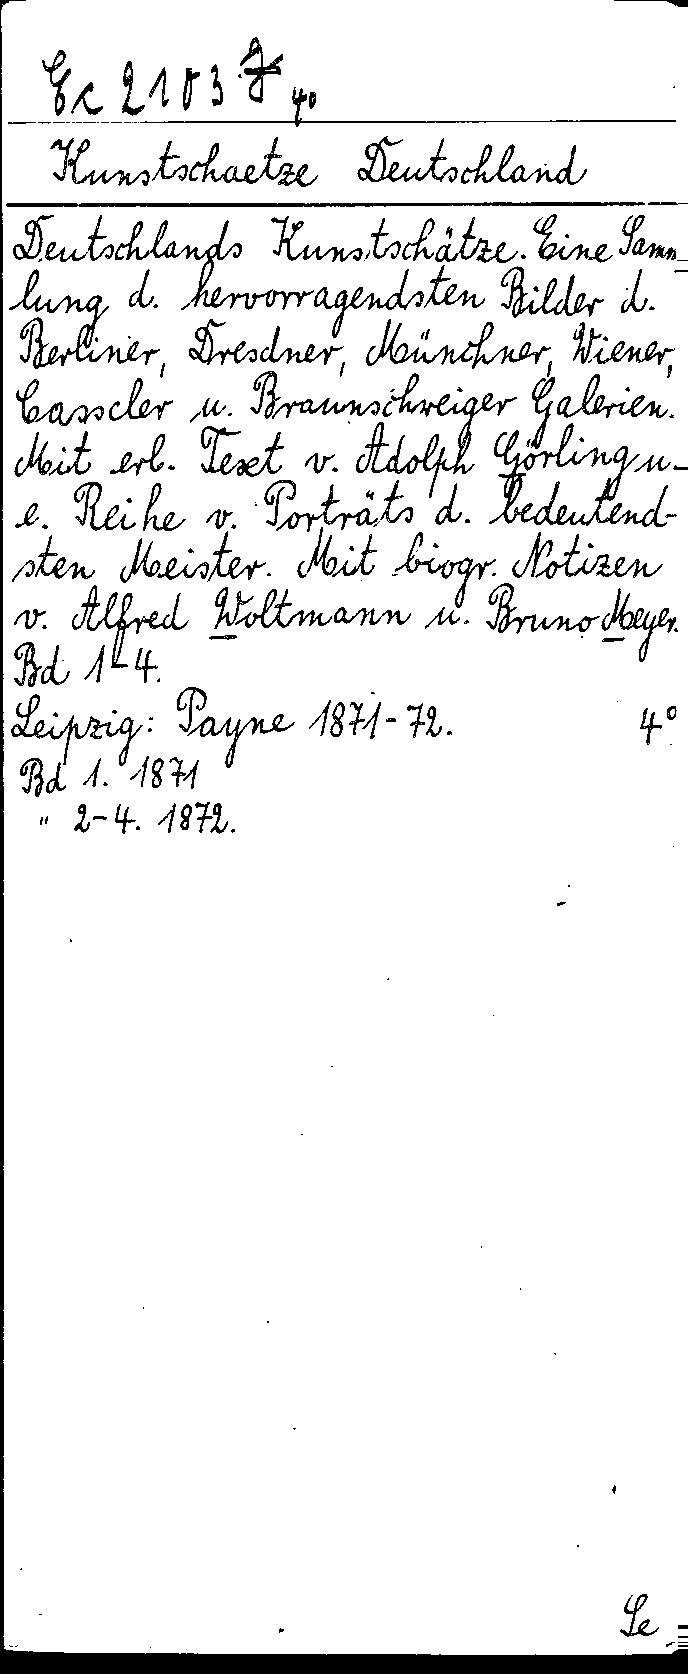 Ec 2103 4°
Kunstschaetze Deutschland
Deutschlands Kunstschätze. Eine Samm-
lung d. hervorragendsten Bilder d.
Berliner, Dresdner, Münchner, Wiener,
Casseler u. Braunschweiger Galerien.
Mit erl. Text v. Adolph Görling u.
e. Reihe v. Porträts d. bedeutend-
sten Meister. Mit biogr. Notizen
v. Alfred Woltmann u. Bruno Meyer.
Bd 1-4.
Leipzig: Payne 1871-72. 4°
Bd 1. 1871
" 2-4. 1872.
Se